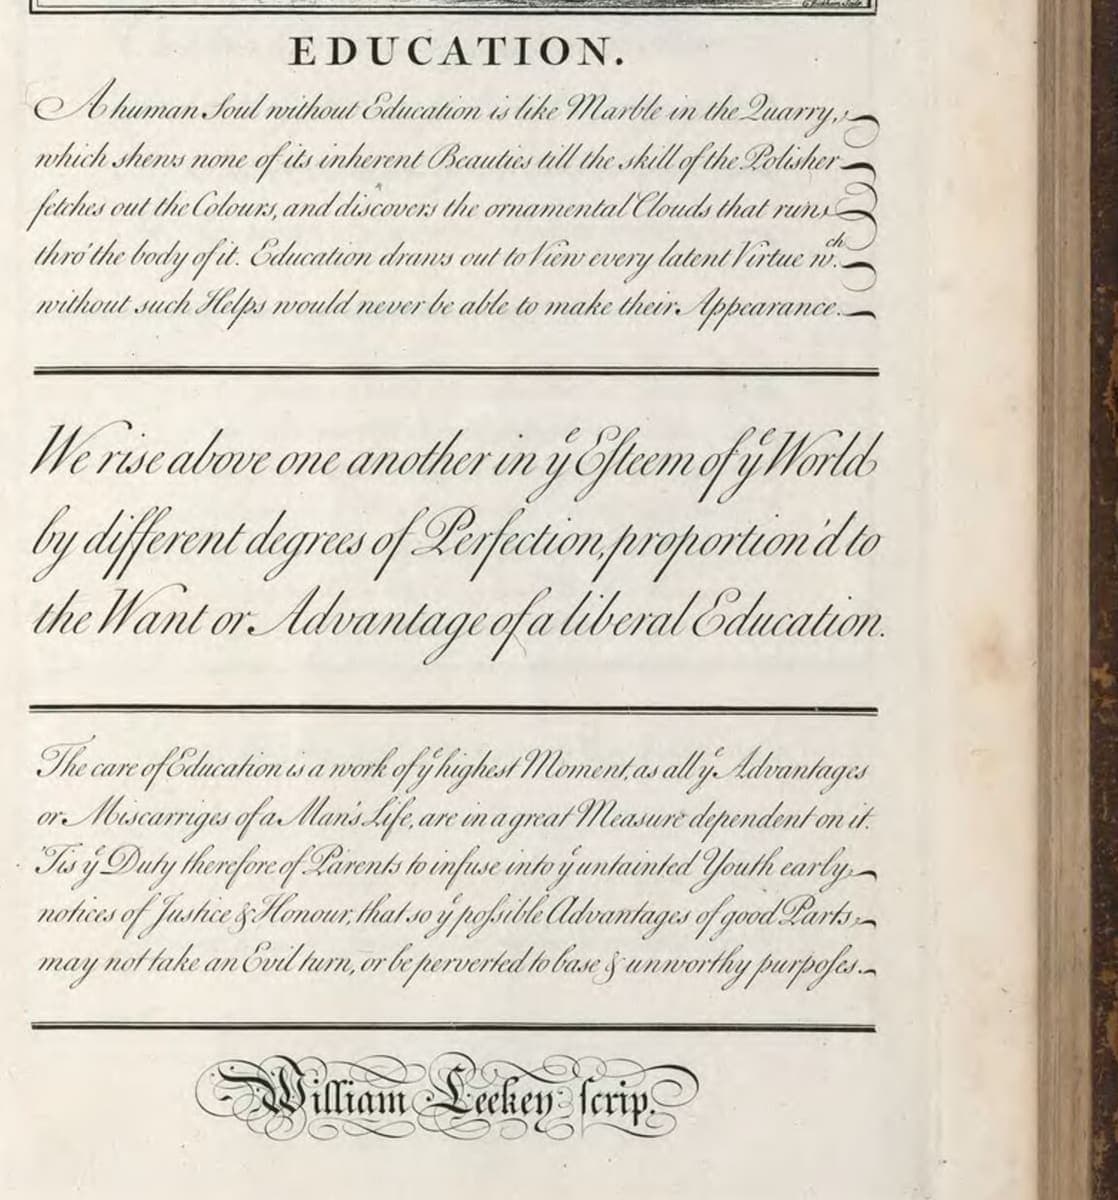 G Bickham Sculp.
EDUCATION.
A human Soul without Education is like Marble in the Quarry,
which shews none of its inherent Beauties till the skill of the Polisher
fetches out the Colours, and discovers the ornamental Clouds that runs
thro' the body of it. Education draws out to View every latent Virtue w.ch
without such Helps would never be able to make their Appearance.
We rise above one another in yͤ Eſteem of yͤ World
by different degrees of Perfection, proportion'd to
the Want or Advantage of a liberal Education.
The care of Education is a work of yͤ highest Moment, as all yͤ Advantages
or Miscarriges of a Man's Life, are in a great Measure dependent on it.
'Tis yͤ Duty therefore of Parents to infuse into yͤ untainted Youth early
notices of Justice & Honour, that so yͤ poſsible Advantages of good Parts,
may not take an Evil turn, or be perverted to base & unworthy purpoſes.
William Leekey ſcrip.